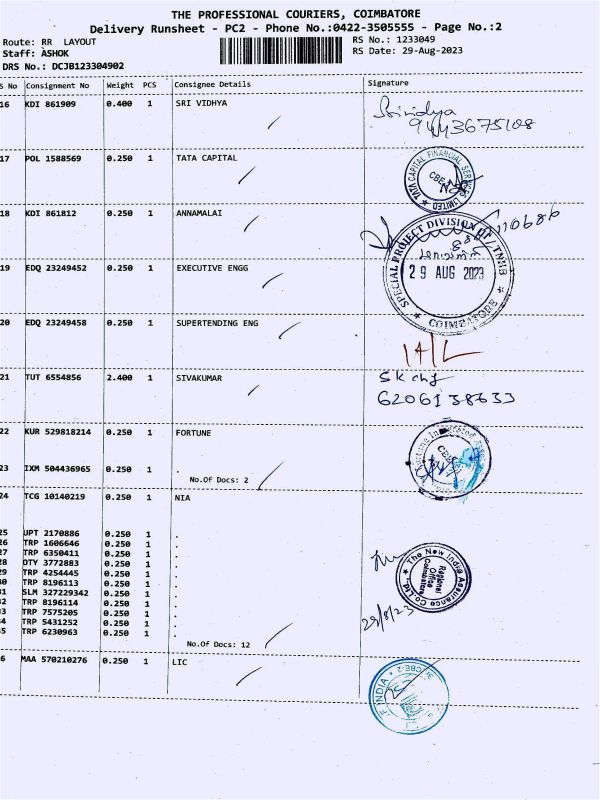 THE PROFESSIONAL COURIERS, COIMBATORE
Delivery Runsheet - PC2 - Phone No.:0422-3505555 - Page No.:2
Route: RR LAYOUT
RS No.: 1233049
Staff: ASHOK
RS Date: 29-Aug-2023
DRS No.: DCJB123304902
S No Consignment No Weight PCS Consignee Details Signature
16 KDI 861909 0.400 1 SRI VIDHYA
17 POL 1588569 0.250 1 TATA CAPITAL
TATA CAPITAL FINANCIAL SERVICES LIMITED
CBE
18 KDI 861812 0.250 1 ANNAMALAI
110686
SPECIAL PROJECT DIVISION
TNHB
29 AUG 2023
COIMBATORE
19 EDQ 23249452 0.250 1 EXECUTIVE ENGG
20 EDQ 23249458 0.250 1 SUPERTENDING ENG
21 TUT 6554856 2.400 1 SIVAKUMAR
6206138633
22 KUR 529818214 0.250 1 FORTUNE
23 IXM 504436965 0.250 1 .
No.Of Docs: 2
24 TCG 10140219 0.250 1 NIA
25 UPT 2170886 0.250 1 .
26 TRP 1606646 0.250 1 .
27 TRP 6350411 0.250 1 .
28 DTY 3772883 0.250 1 .
29 TRP 4254445 0.250 1 .
0 TRP 8196113 0.250 1 .
1 SLM 327229342 0.250 1 .
2 TRP 8196114 0.250 1 .
3 TRP 7575205 0.250 1 .
4 TRP 5431252 0.250 1 .
5 TRP 6230963 0.250 1 .
No.Of Docs: 12
The New India Assurance Co. Ltd.
Regional
Office
Coimbatore
29/8/23
6 MAA 570210276 0.250 1 LIC
F INDIA
CBE-2